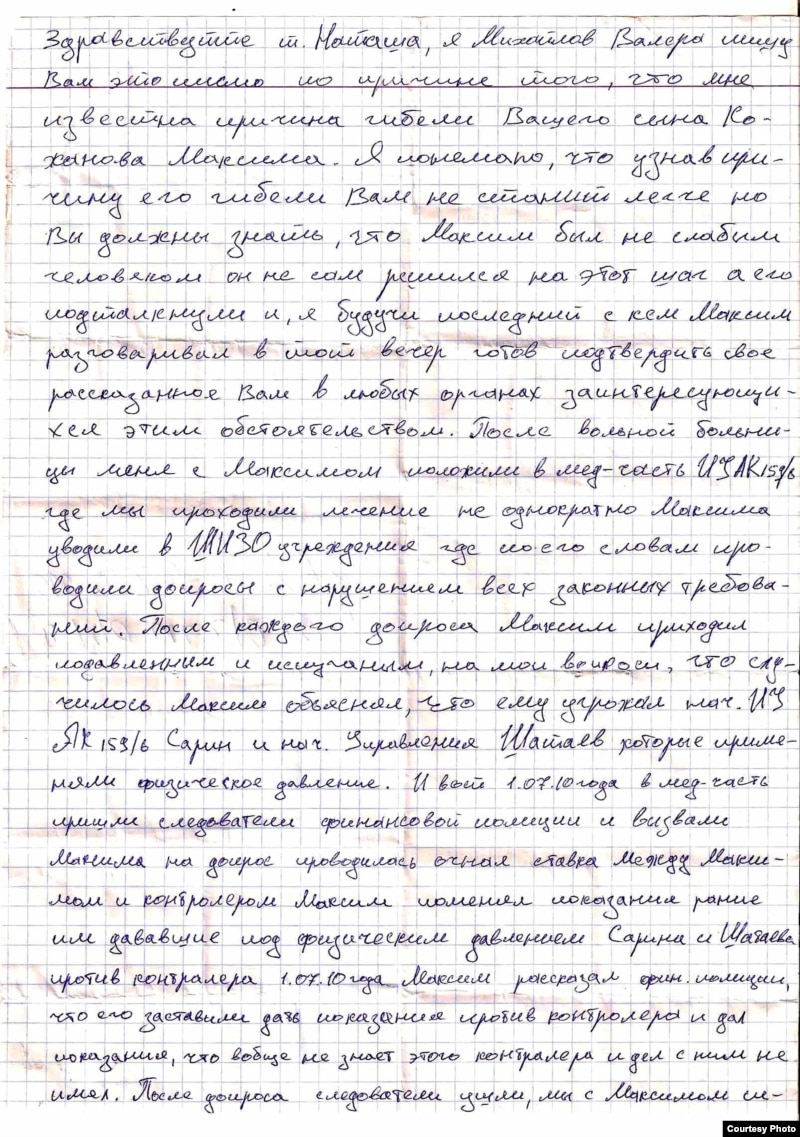 Здравствуйте т. Наташа, я Михайлов Валера пишу
Вам это писмо по причине того, что мне
известна причина гибели Вашего сына Ко-
жанова Максима. Я понемаю, что узнав при-
чину его гибели Вам не станит легче но
Вы должны знать, что Максим был не слабым
человеком он не сам решился на этот шаг а его
подталкнули и, я будучи последний с кем Максим
разговаривал в тот вечер готов подтвердить свое
рассказанное Вам в любых органах заинтересующи-
хся этим обстоятельством. После вольной больни-
цы меня с Максимом положили в мед-часть ИЗ АК 159/6
где мы проходили лечение не однократно Максима
уводили в ШИЗО учреждения где по его словам про-
водили допросы с нарушением всех законных требова-
ний. После каждого допроса Максим приходил
подавленным и испуганым, на мои вопросы, что слу-
чилось Максим обьяснял, что ему угрожал нач. ИЗ
АК 159/6 Сарин и нач. Управления Шатаев которые приме-
няли физическое давление. И вот 1.07.10 года в мед-часть
пришли следователи финансовой полиции и вызвали
Максима на допрос проводилась очная ставка между Макси-
мом и контролером Максим поменял показания рание
им дававшие под физическим давлением Сарина и Шатаева
против контралера 1.07.10 года Максим рассказал фин. полиции,
что его заставили дать показания против контролера и дал
показания, что вобще не знает этого контралера и дел с ним не
имел. После допроса следователи ушли, мы с Максимом си-
Courtesy Photo